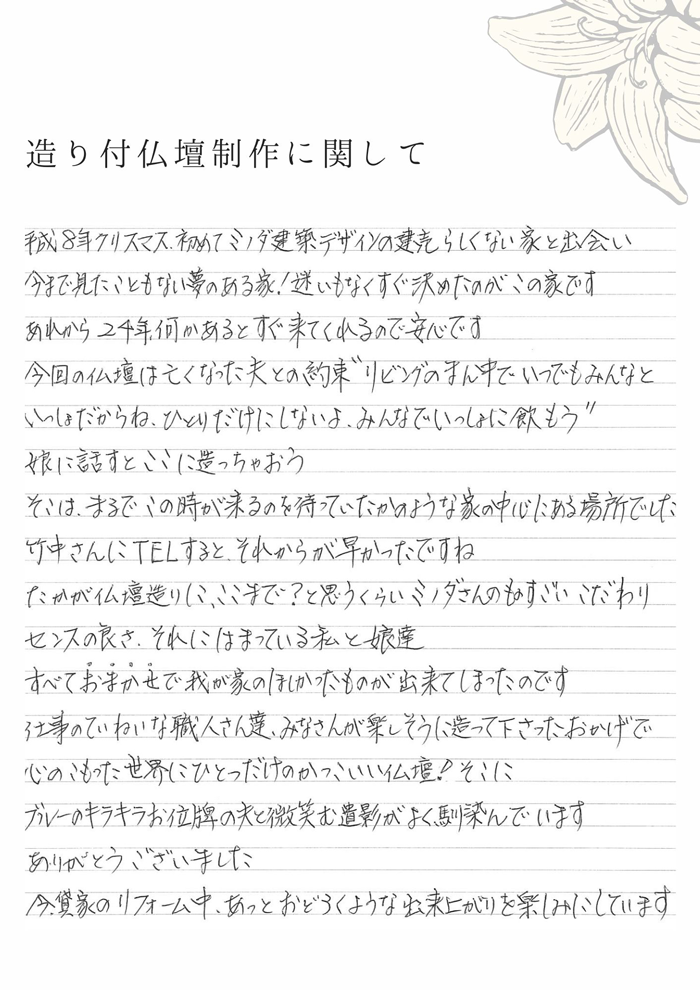 造り付仏壇制作に関して
平成8年クリスマス、初めてミノダ建築デザインの建売らしくない家と出会い
今まで見たこともない夢のある家！迷いもなくすぐ決めたのがこの家です
あれから24年、何かあるとすぐ来てくれるので安心です
今回の仏壇は亡くなった夫との約束〝リビングのまん中でいつでもみんなと
いっしょだからね、ひとりだけにしないよ、みんなでいっしょに飲もう〟
娘に話すとここに造っちゃおう
そこは、まるでこの時が来るのを待っていたかのような家の中心にある場所でした
竹中さんにTELすると、それからが早かったですね
たかが仏壇造りに、ここまで？と思うくらいミノダさんのものすごいこだわり
センスの良さ、それにはまっている私と娘達
すべておまかせで我が家のほしかったものが出来てしまったのです
仕事のていねいな職人さん達、みなさんが楽しそうに造って下さったおかげで
心のこもった世界にひとつだけのかっこいい仏壇！そこに
ブルーのキラキラお位牌の夫と微笑む遺影がよく馴染んでいます
ありがとうございました
今、貸家のリフォーム中、あっとおどろくような出来上がりを楽しみにしています